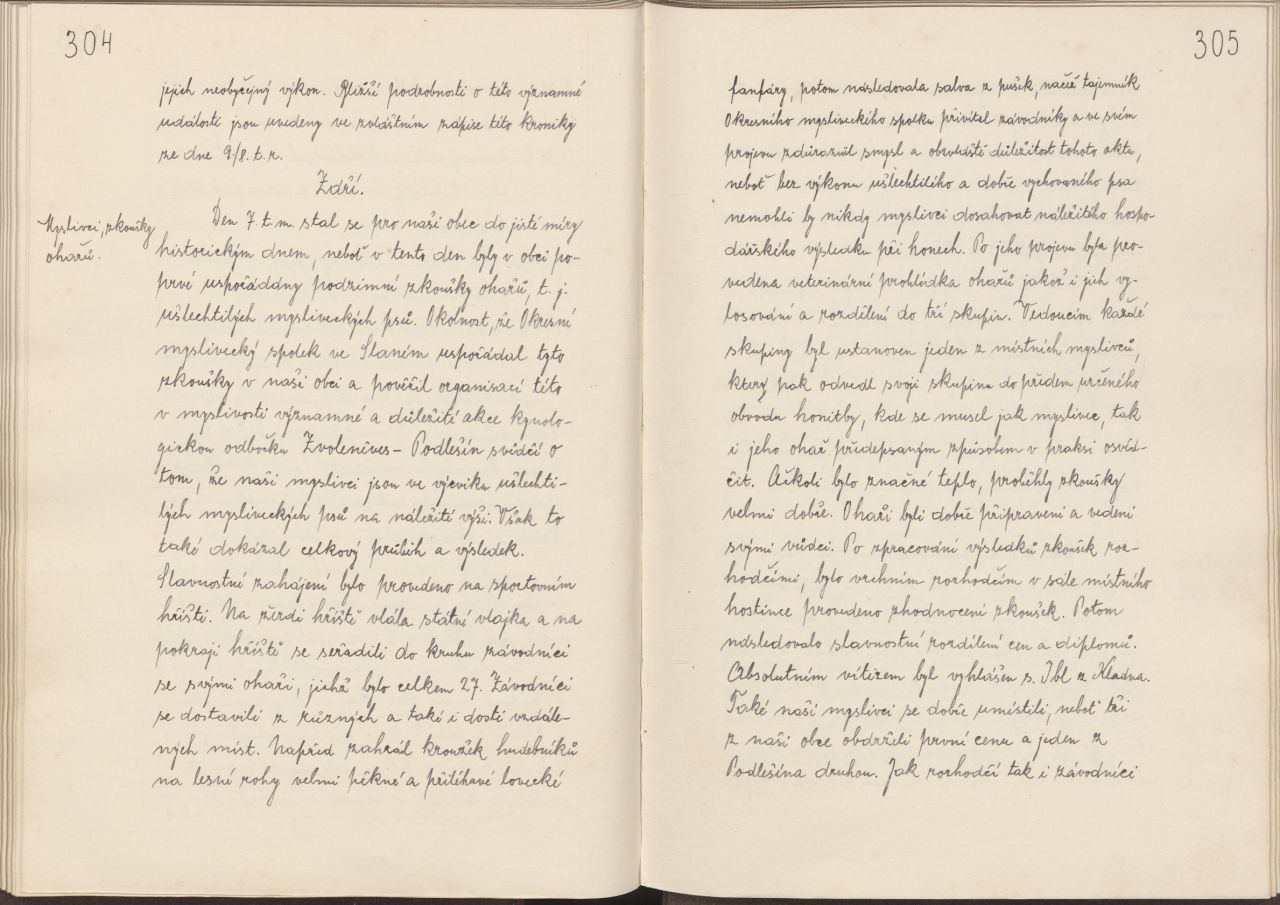 304
jejich neobyčejný výkon. Bližší podrobnosti o této významné
události jsou uvedeny ve zvláštním zápise této kroniky
ze dne 9/8. t. r.
Září.
Myslivci, zkoušky
ohařů.
Den 7. t. m. stal se pro naši obec do jisté míry
historickým dnem, neboť v tento den byly v obci po-
prvé uspořádány podzimní zkoušky ohařů, t. j.
ušlechtilých mysliveckých psů. Okolnost, že Okresní
myslivecký spolek ve Slaném uspořádal tyto
zkoušky v naší obci a pověřil organisací této
v myslivosti významné a důležité akce kynolo-
gickou odbočku Zvoleněves - Podlešín svědčí o
tom, že naši myslivci jsou ve výcviku ušlechti-
lých mysliveckých psů na náležité výši. Však to
také dokázal celkový průběh a výsledek.
Slavnostní zahájení bylo provedeno na sportovním
hřišti. Na žerdi hřiště vlála státní vlajka a na
pokraji hřiště se seřadili do kruhu závodníci
se svými ohaři, jichž bylo celkem 27. Závodníci
se dostavili z různých a také i dosti vzdále-
ných míst. Napřed zahrál kroužek hudebníků
na lesní rohy velmi pěkné a přiléhavé lovecké
305
fanfáry, potom následovala salva z pušek, načež tajemník
Okresního mysliveckého spolku přivítal závodníky a ve svém
projevu zdůraznil smysl a obzvláště důležitost tohoto aktu,
neboť bez výkonu ušlechtilého a dobře vychovaného psa
nemohli by nikdy myslivci dosahovat náležitého hospo-
dářského výsledku při honech. Po jeho projevu byla pro-
vedena veterinární prohlídka ohařů jakož i jich vy-
losování a rozdělení do tří skupin. Vedoucím každé
skupiny byl ustanoven jeden z místních myslivců,
který pak odvedl svoji skupinu do předem určeného
obvodu honitby, kde se musel jak myslivec, tak
i jeho ohař předepsaným způsobem v praksi osvěd-
čit. Ačkoli bylo značné teplo, proběhly zkoušky
velmi dobře. Ohaři byli dobře připraveni a vedeni
svými vůdci. Po zpracování výsledků zkoušek roz-
hodčími, bylo vrchním rozhodčím v sále místního
hostince provedeno zhodnocení zkoušek. Potom
následovalo slavnostní rozdělení cen a diplomů.
Absolutním vítězem byl vyhlášen s. Ibl z Kladna.
Také naši myslivci se dobře umístili, neboť tři
z naší obce obdrželi první cenu a jeden z
Podlešína druhou. Jak rozhodčí tak i závodníci